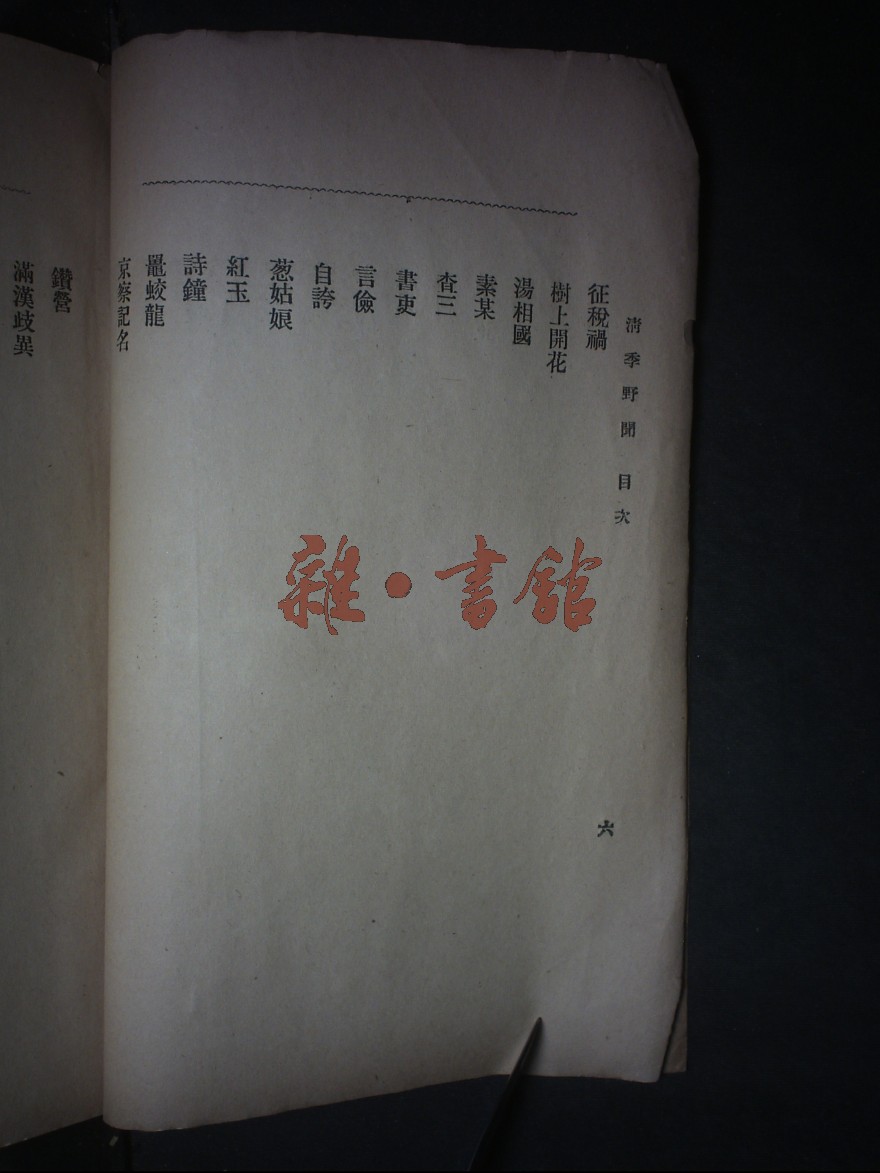 清季野聞 目次
六
征稅禍
樹上開花
湯相國
素某
査三
書吏
言儉
自誇
葱姑娘
紅玉
詩鐘
鼉蛟龍
京察記名
鑽營
滿漢歧異
雜·書館